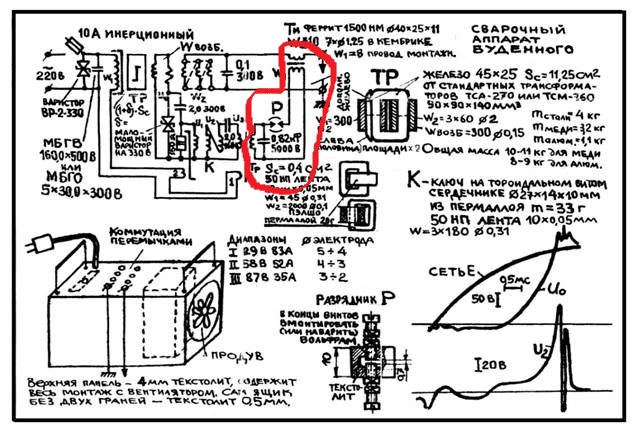 10А ИНЕРЦИОННЫЙ
W ВОЗБ.
Ти ФЕРРИТ 1500 НМ Ø40×25×11
7×Ø1,25 В КЕМБРИКЕ
W₁=8 ПРОВОД МОНТАЖН.
СВАРОЧНЫЙ
АППАРАТ
БУДЕННОГО
~220В
ВАРИСТОР
ВР-2-330
0,1
300В
ТР
Sс
МАЛО-
МОЩНЫЙ
ВАРИСТОР
НА 330 В
W₂
2,0 300В
К
Р
0,02 мкГ
5000 В
МБГВ
160,0×500 В
ИЛИ
МБГО
5×30,0×300В
2 3
1
Тр Sс=0,4 см²
50 НП ЛЕНТА
W₁=45 Ø0,31
W₂=2000 Ø0,1
ПЕРМАЛЛОЙ 20г
ТР
W₁=300
ЖЕЛЕЗО 45×25 Sс=11,25см²
ОТ СТАНДАРТНЫХ ТРАНСФОРМА-
ТОРОВ ТСА-270 ИЛИ ТСМ-360
90×90×140мм³
W₂=3×60 Ø2
W ВОЗБ=300 Ø0,15
m СТАЛИ 4 КГ
m МЕДИ=3,2 КГ
m АЛЮМ.=1,1 КГ
ОБЩАЯ МАССА 10-11 КГ ДЛЯ МЕДИ
8-9 КГ ДЛЯ АЛЮМ.
К-КЛЮЧ НА ТОРОИДАЛЬНОМ ВИТОМ
СЕРДЕЧНИКЕ Ø27×14×10мм
ИЗ ПЕРМАЛЛОЯ m=33г
50 НП ЛЕНТА 10×0,05мм
W=3×180 Ø0,31
КОММУТАЦИЯ
ПЕРЕМЫЧКАМИ
ДИАПАЗОНЫ Ø ЭЛЕКТРОДА
I 29В 83А 5÷4
II 58В 52А 4÷3
III 87В 35А 3÷2
ПРОДУВ
РАЗРЯДНИК Р
В КОНЦЫ ВИНТОВ
ВМОНТИРОВАТЬ
(ИЛИ НАВАРИТЬ)
ВОЛЬФРАМ.
ТЕКСТО-
ЛИТ
СЕТЬ Е
0,5МС
50В
U₀
20В
U₂
ВЕРХНЯЯ ПАНЕЛЬ – 4мм ТЕКСТОЛИТ, СОДЕРЖИТ
ВЕСЬ МОНТАЖ С ВЕНТИЛЯТОРОМ. САМ ЯЩИК
БЕЗ ДВУХ ГРАНЕЙ – ТЕКСТОЛИТ 0,5мм.